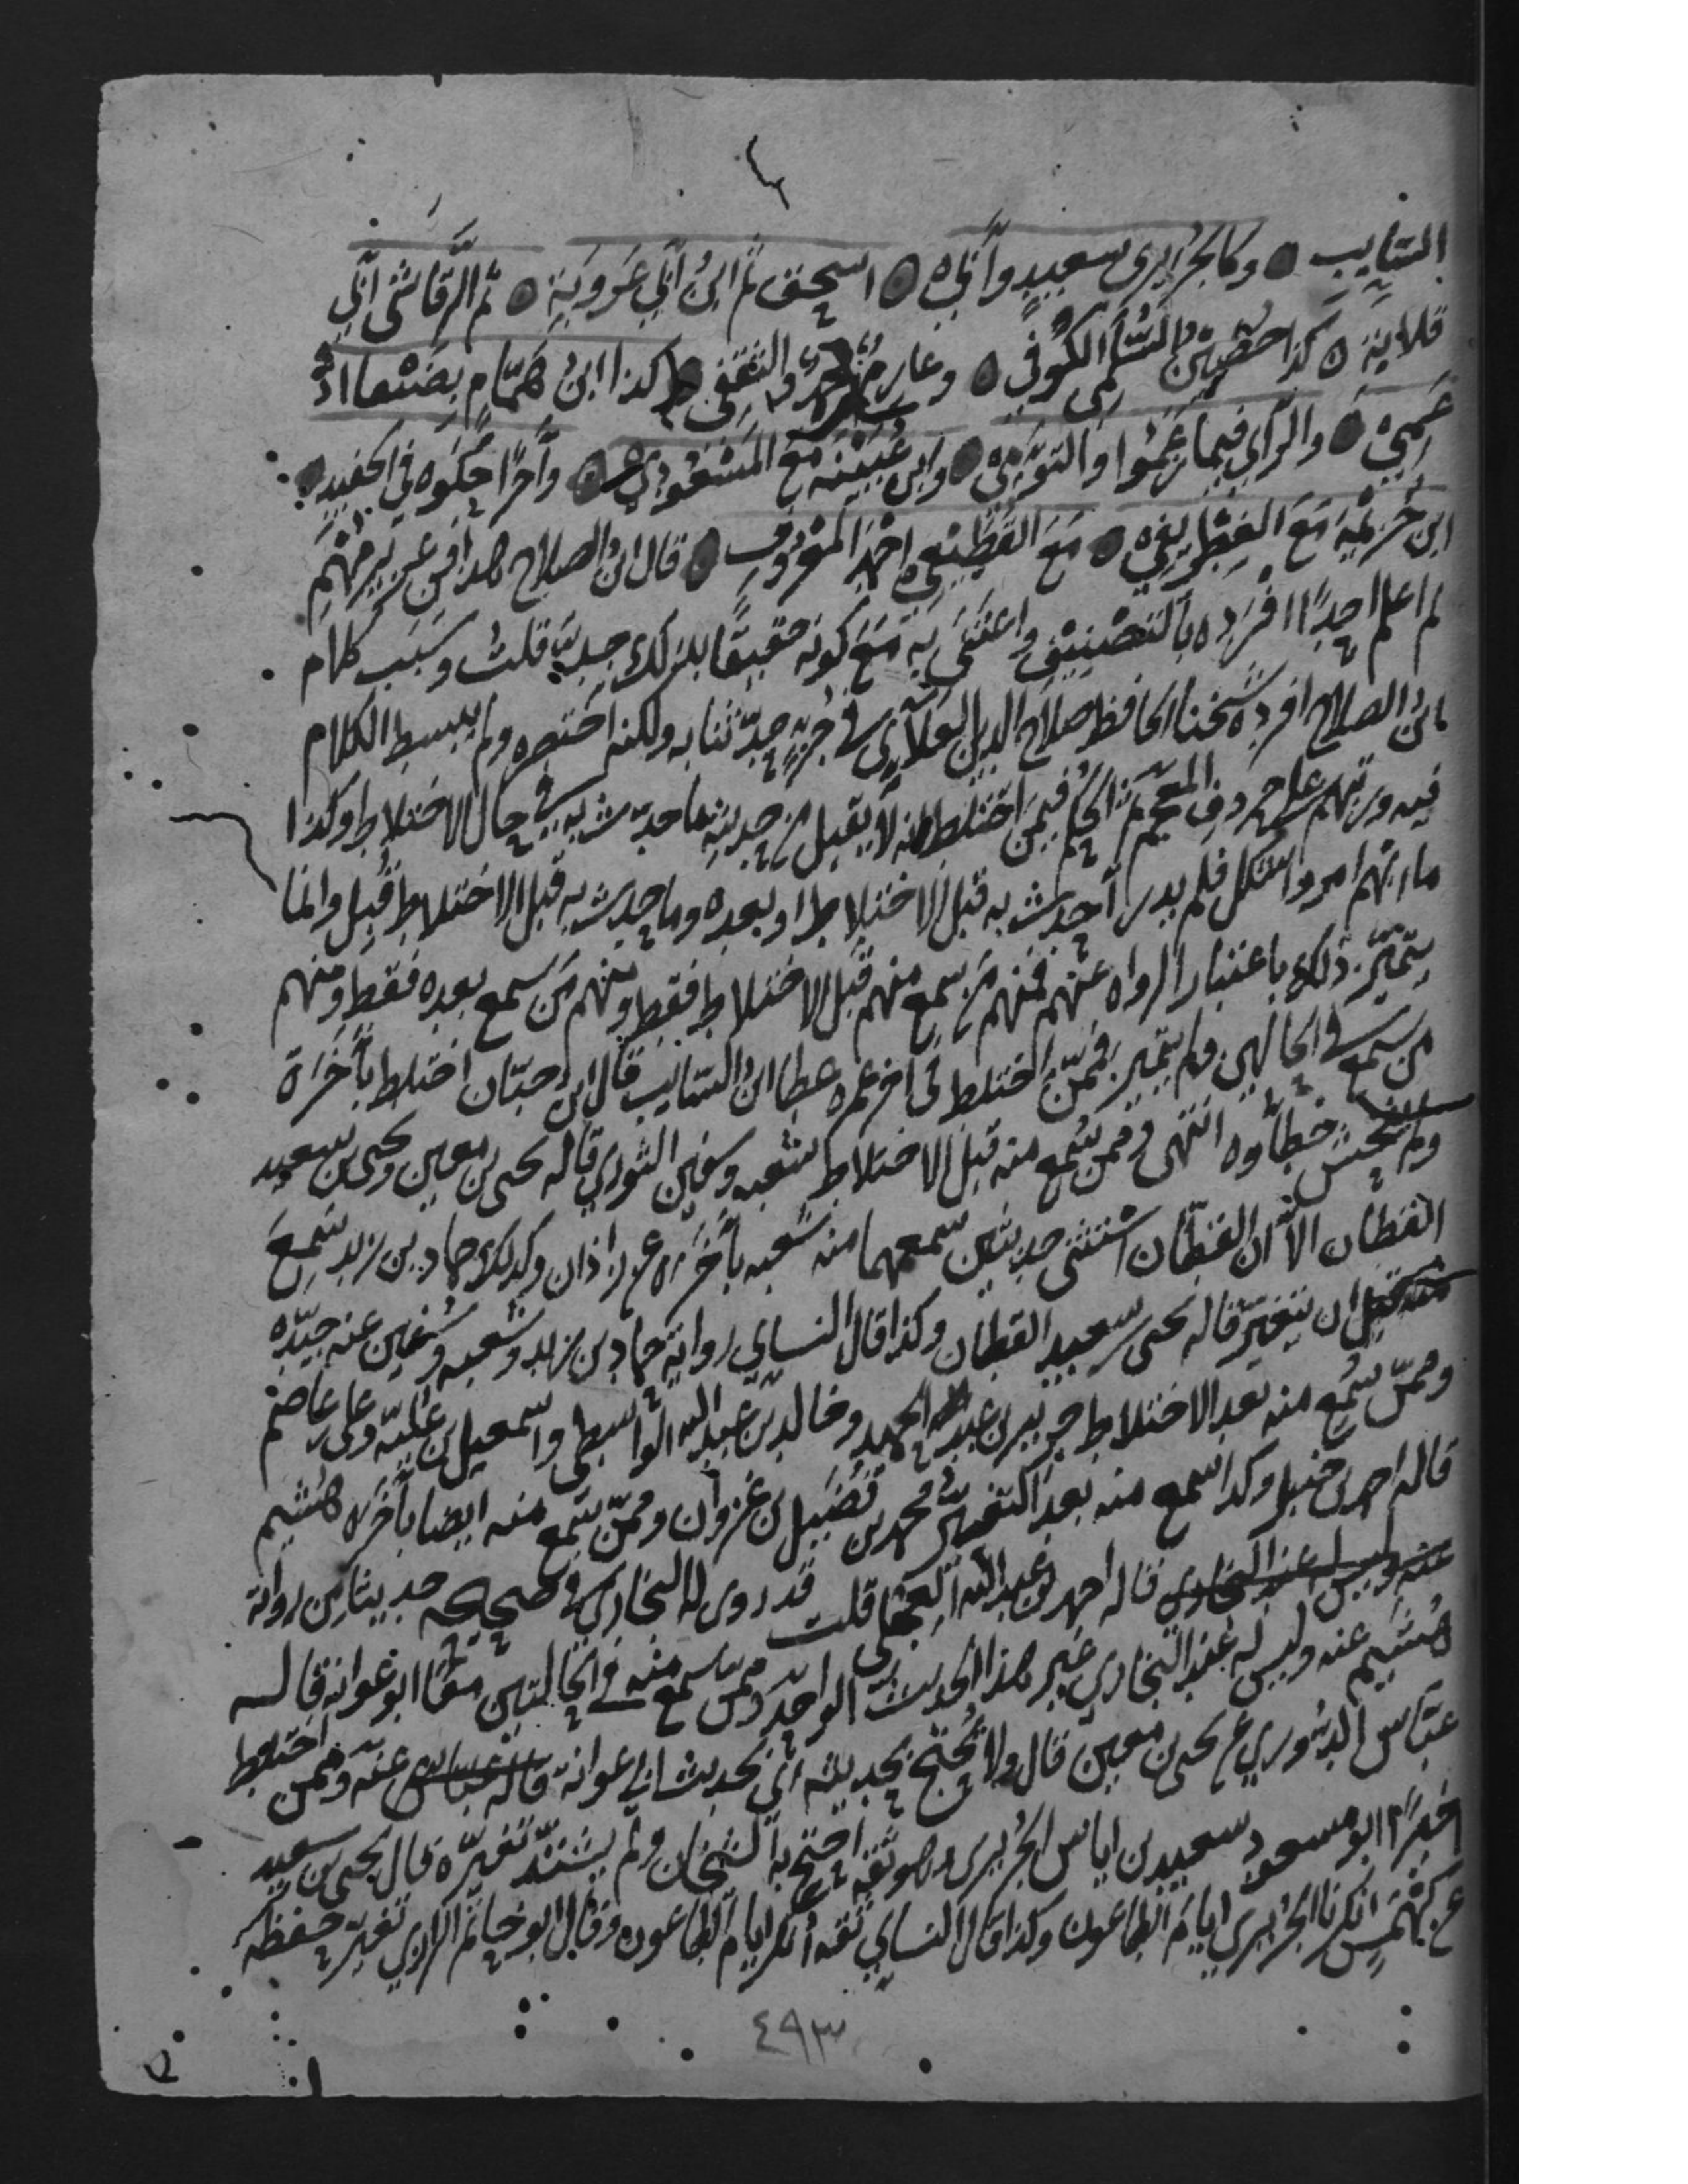 السَّايِبِ وكالجُرَيرى سعيدٍ وأبي اسحق ثم ابنُ أبي عَرُوبَةِ ثم الرَّقَاشيّ أبي
قلابة كذا حُصَينُ السُّلَمى الكوفي وعارمٌ محمدٌ والثقفي كذا ابنُ هَمّامٍ بصَنْعا اذ
عَمِى والرأي فيما زعموا والتوْءمي وابن عُيَيْنة معَ المسْعُوديِ وآخراً حكَوْه فى الحفيد
ابن خُزَيْمَةِ مَعَ الغِطْرِيفي مَعَ القَطِيْعي احمدَ المعْرُوفِ قال ابن الصلاح هذا فن عزيز مُهم
لم اعلم احداً افرَدَه بالتصْنِيْفِ واعتَنَى به مَعَ كونه حقيقًا بذلك جداً قلتُ وبسَبب كلام
ابن الصلاح افرده شيخنا الحافظ صلاح الدين العلآي في جُزءٍ حدّثنا به ولكنه اختصره ولم يبسط الكلام
فيه ورتبهم على حروف المعجم ثم الحكم فيمن اختلط انه لا يقبل من حديثه ما حدّث به في حال الاختلاط وكذا
ما ابهم امره واشكل فلم يدر أحدث به قبل الاختلاط او بعده وما حدث به قبل الاختلاط قُبِل وانما
يتمَيَّز ذلك باعتبار الرواه عنهم فمنهم من سمع منهم قبل الاختلاط فقط ومنهم من سمع بعده فقط ومنهم
من سمع في الحالين ولم يتميز فممّن اختلط فى اخر عمره عطا ابن السّايب قال ابن حبّان اختلط بأَخَرَة
ولم يفحش خطاوه انتهى وممن سُمع منه قبل الاختلاط شعبه وسفين الثوري قاله يحيى بن معين ويحيى بن سعيد
القطان الاّ ان القطّان استثنى حديثين سمعهما منه شعبه بأَخَرَه عن زاذان وكذلك حماد بن زيد سَمِعَ
منه قبل ان يتغيّر قاله يحيى بن سعيد القطان وكذا قال النساي رواية حماد بن زيد وشعبه وسُفين عنه جيّده
وممّن سُمع منه بعد الاختلاط جرير بن عبد الحميد وخالد بن عبد الله الواسطى واسمعيل بن عُليّه وعلى بن عاصم
قاله احمد بن حنبل وكذا سمع منه بعد التغيّر محمد بن فُضَيل بن غزوان وممّن سَمع منه ايضا بأَخَرَه هُشيم
قاله احمد بن عبد الله العجلي قلت قد روى له البخاري في صحيحه حديثا من رواية
هُشَيم عنه وليس له عند البخاري غير هذا الحديث الواحد وممن سمع منه في الحالتين معًا ابو عوانة قاله
عبّاس الدُوري عن يحيى بن معين قال ولا يُحتج بحديثه اي بحديث ابي عوانة عنه وممن اختلط
اخيراً ابو مسعود سعيد بن اياس الجُريرى وهو ثقه احتج به الشيخان ولم يشتدّ تغيّره قال يحيى بن سعيد
عن كَهْمَسٍ انكرنا الجُريري ايامَ الطاعون وكذا قال النساي ثقه اُنكر ايام الطاعون وقال ابو حاتم الرازي تغيّر حفظه
٤٩٣